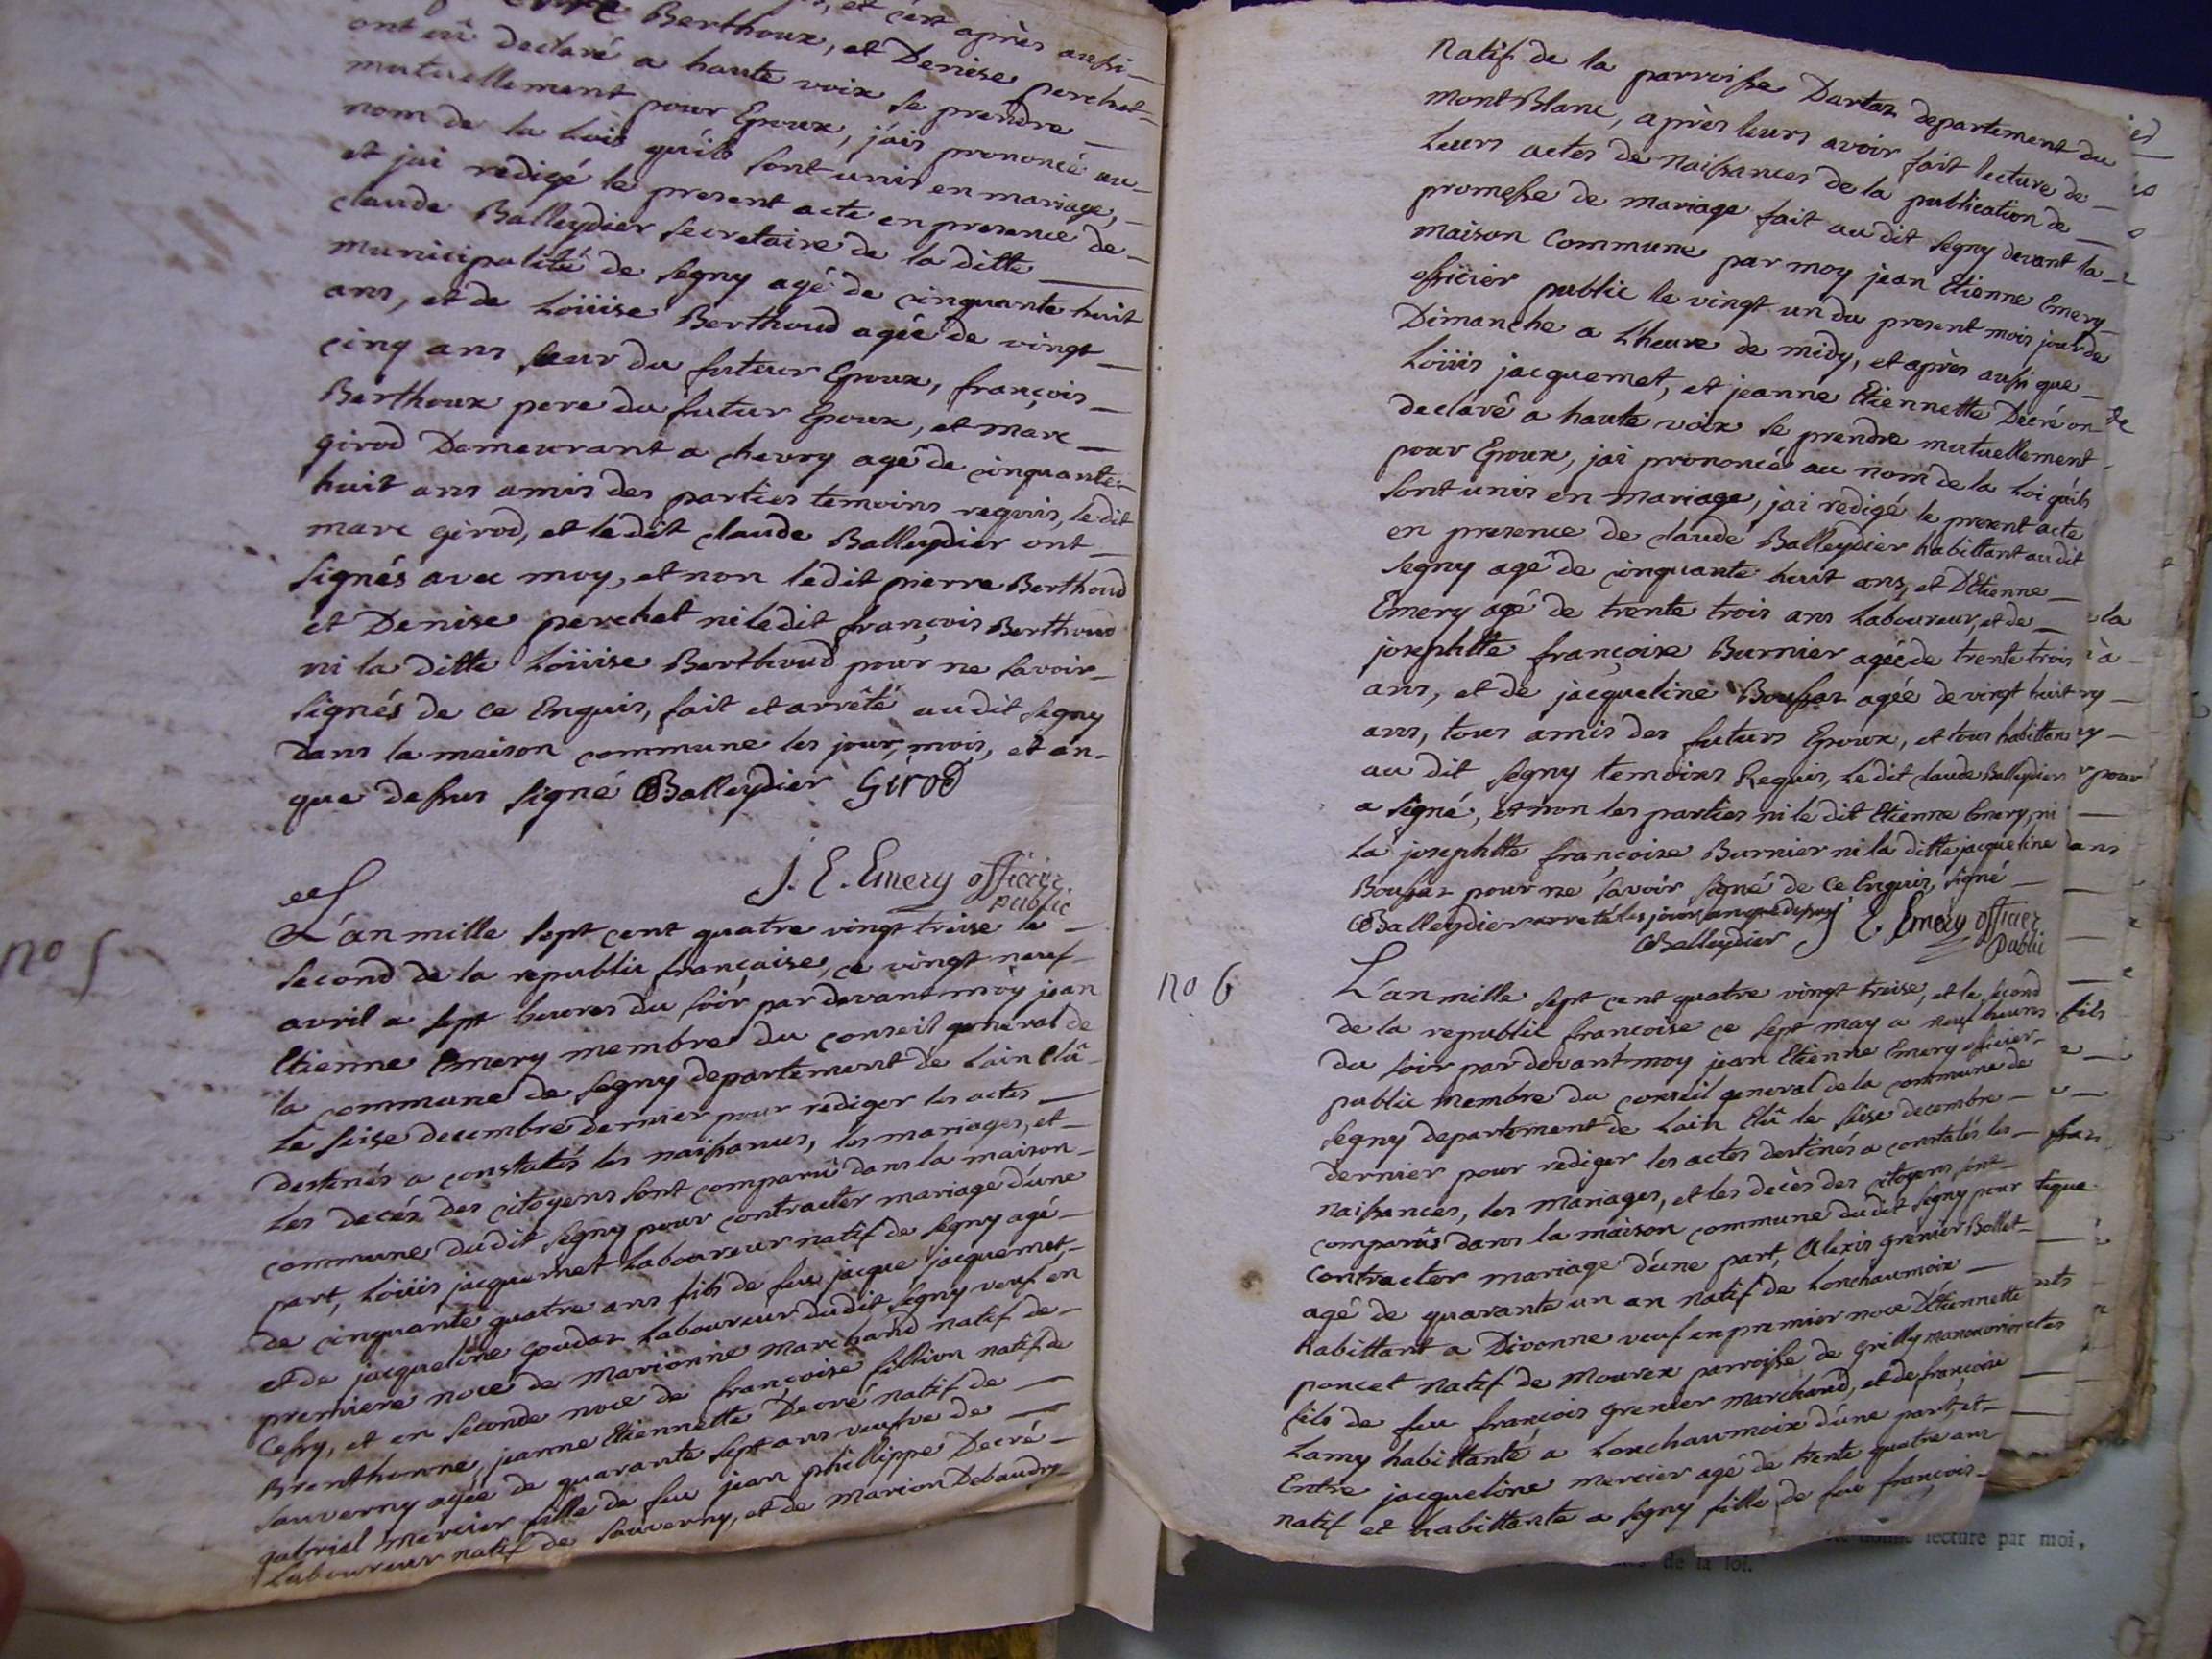 et c'est après aussi
Berthoux, et Denise perchet
ont eû declaré a haute voix se prendre
mutuellement pour Epoux, j'ais prononcé au
nom de la Lois qu'ils sont unis en mariage,
et jai redigé le present acte en presence de
claude Balleydier secretaire de la ditte
municipalité de segny agé de cinquante huit
ans, et de Loüise Berthoud agée de vingt
cinq ans sœur du futeur Epoux, françois
Berthoux pere du futur Epoux, et marc
girod Demeurant a chevry agé de cinquante
huit ans amis des parties temoins requis, le dit
marc girod, et le dit claude Balleydier ont
signés avec moy, et non ledit pierre Berthoud
et Denise perchet ni ledit françois Berthoud
ni la ditte Loüise Berthoud pour ne savoir
signés de ce Enquis, fait et arrêté au dit segny
dans la maison commune les jour, mois, et an
que dessus signé Balleydier Girod
J. E. Emery officier
public
no 5
L'an mille sept cent quatre vingt treise le
second de la republic française, ce vingt neuf
avril a sept heures du soir par devant moy jean
Etienne Emery membre du conseil general de
la commune de segny departement de Lain Elû
le seise decembre dernier pour rediger les actes
destinés a constatés les naissances, les mariages, et
les decés des citoyens sont comparû dans la maison
commune dudit segny pour contracter mariage d'une
part, Loüis jacquemet Laboureur natif de segny agé
de cinquante quatre ans fils de feu jacque jacquemet
et de jacqueline goudar Laboureur dudit segny veuf en
premiere noce de marionne marchand natif de
Cessy, et en seconde noce de françoise fillion natif de
Brenthonne, jeanne Etiennette Decré natif de
sauverny agée de quarante sept ans veufve de
gabriel mercier fille de feu jean phillippe Decré
Laboureur natif de sauverny, et de marion Debaudry
natif de la parroisse Dartaz departement du
mont Blanc, après leurs avoir fait lecture de
Leurs actes de naissances de la publication de
promesse de mariage fait au dit segny devant la
maison commune par moy jean Etienne Emery
officier public le vingt un du present mois jour de
Dimanche a L'heure de midy, et après aussi que
Loüis jacquemet, et jeanne Etiennette Decré on
declaré a haute voix se prendre mutuellement
pour Epoux, jai prononcé au nom de la Loi qu'ils
sont unis en mariage, jai redigé le present acte
en presence de claude Balleydier habittant au dit
segny agé de cinquante huit ans, et D'Etienne
Emery agé de trente trois ans Laboureur, et de
josephtte françoise Burnier agée de trente trois
ans, et de jacqueline Boussaz agée de vingt huit
ans, tous amis des futurs Epoux, et tous habittans
au dit segny temoins Requis, le dit claude Balleydier
a signé, et non les parties ni le dit Etienne Emery, ni
La josephtte françoise Burnier ni la ditte jacqueline
Boussaz pour ne savoir signé de ce Enquis, signé
Balleydier arreté les jours an que dessus
Balleydier J. E. Emery officier
public
no 6
L'an mille sept cent quatre vingt treise, et le second
de la republic francoise ce sept may a neuf heures
du soir par devant moy jean Etienne Emery officier
public membre du conseil general de la commune de
segny departement de Lain Elû le seise decembre
dernier pour rediger les actes destinés a constatés les
naissances, les mariages, et les decès des citoyens sont
comparûs dans la maison commune dudit segny pour
contracter mariage d'une part, Alexis grenier Bollet
agé de quarante un an natif de Lonchaumoix
habittant a Divonne veuf en premier noce D'Etiennette
poncet natif de mourex parroisse de grilly
fils de feu françois grenier marchand, et de françoise
Lamy habittante a Lonchaumoix d'une part, et
Entre jacqueline mercier agé de trente quatre ans
natif et habittante a segny fille de feu françois
lecture par moi,
de la loi.